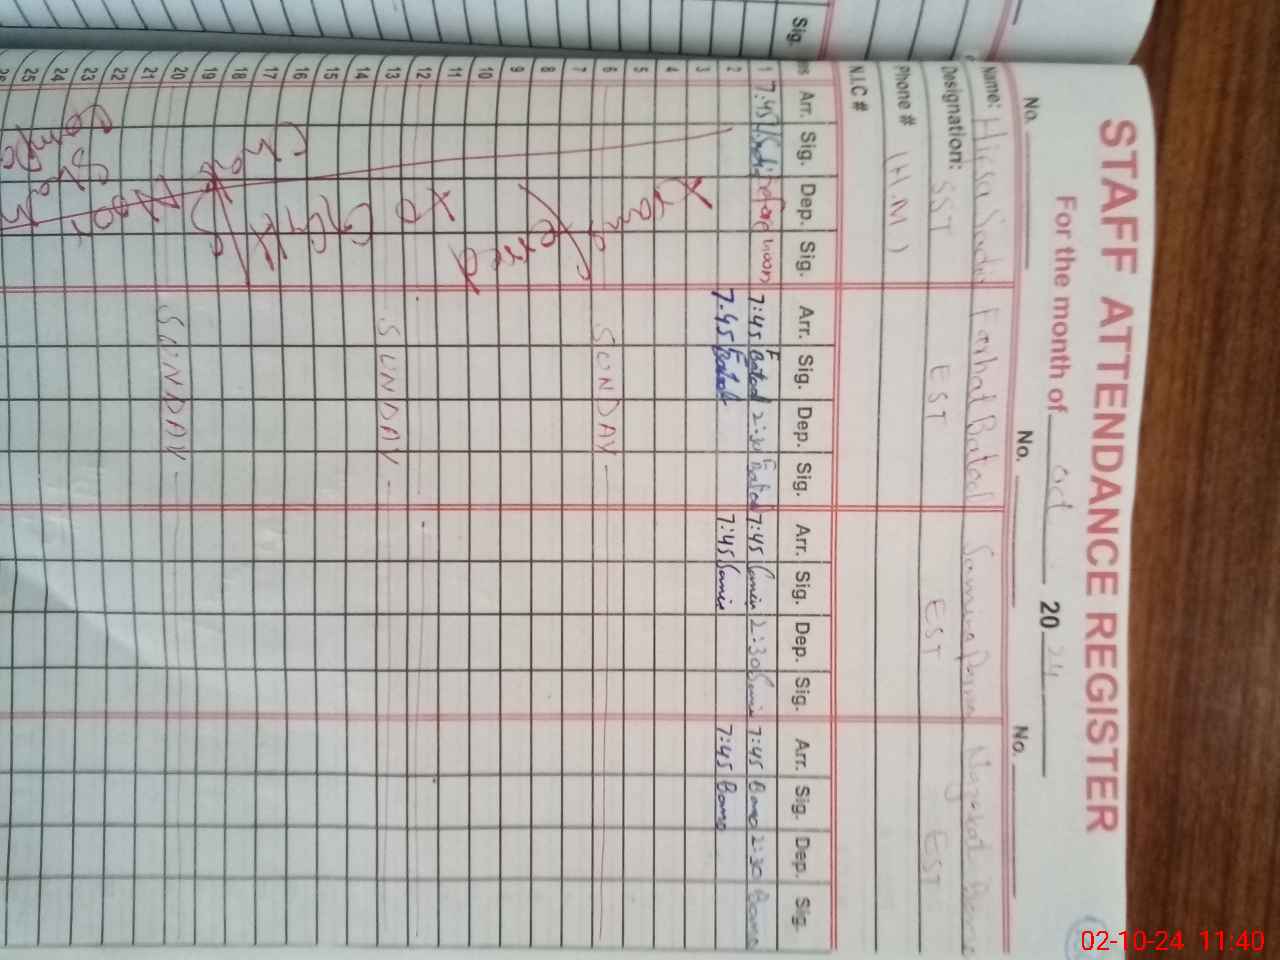 STAFF ATTENDANCE REGISTER
For the month of Oct 2024
No. No. No.
Name: Hifsa Sadiq Farhat Batool Samina Nazakat
Designation: SST EST EST EST
Phone # (H.M)
N.I.C #
Sig.
Arr. Sig. Dep. Sig. Arr. Sig. Dep. Sig. Arr. Sig. Dep. Sig. Arr. Sig. Dep. Sig.
1 7:45 Sadiq before noon 7:45 F Batool 2:30 F Batool 7:45 Samina 2:30 Samina 7:45 Bano 2:30 Bano
2 7:45 F Batool 7:45 Samina 7:45 Bano
3
4
5
6 SUNDAY
7
8
9
10
11
12
13 SUNDAY
14
15
16
17
18
19
20 SUNDAY
21
22
23
24
25
26
Transferred
to
Camp
02-10-24 11:40